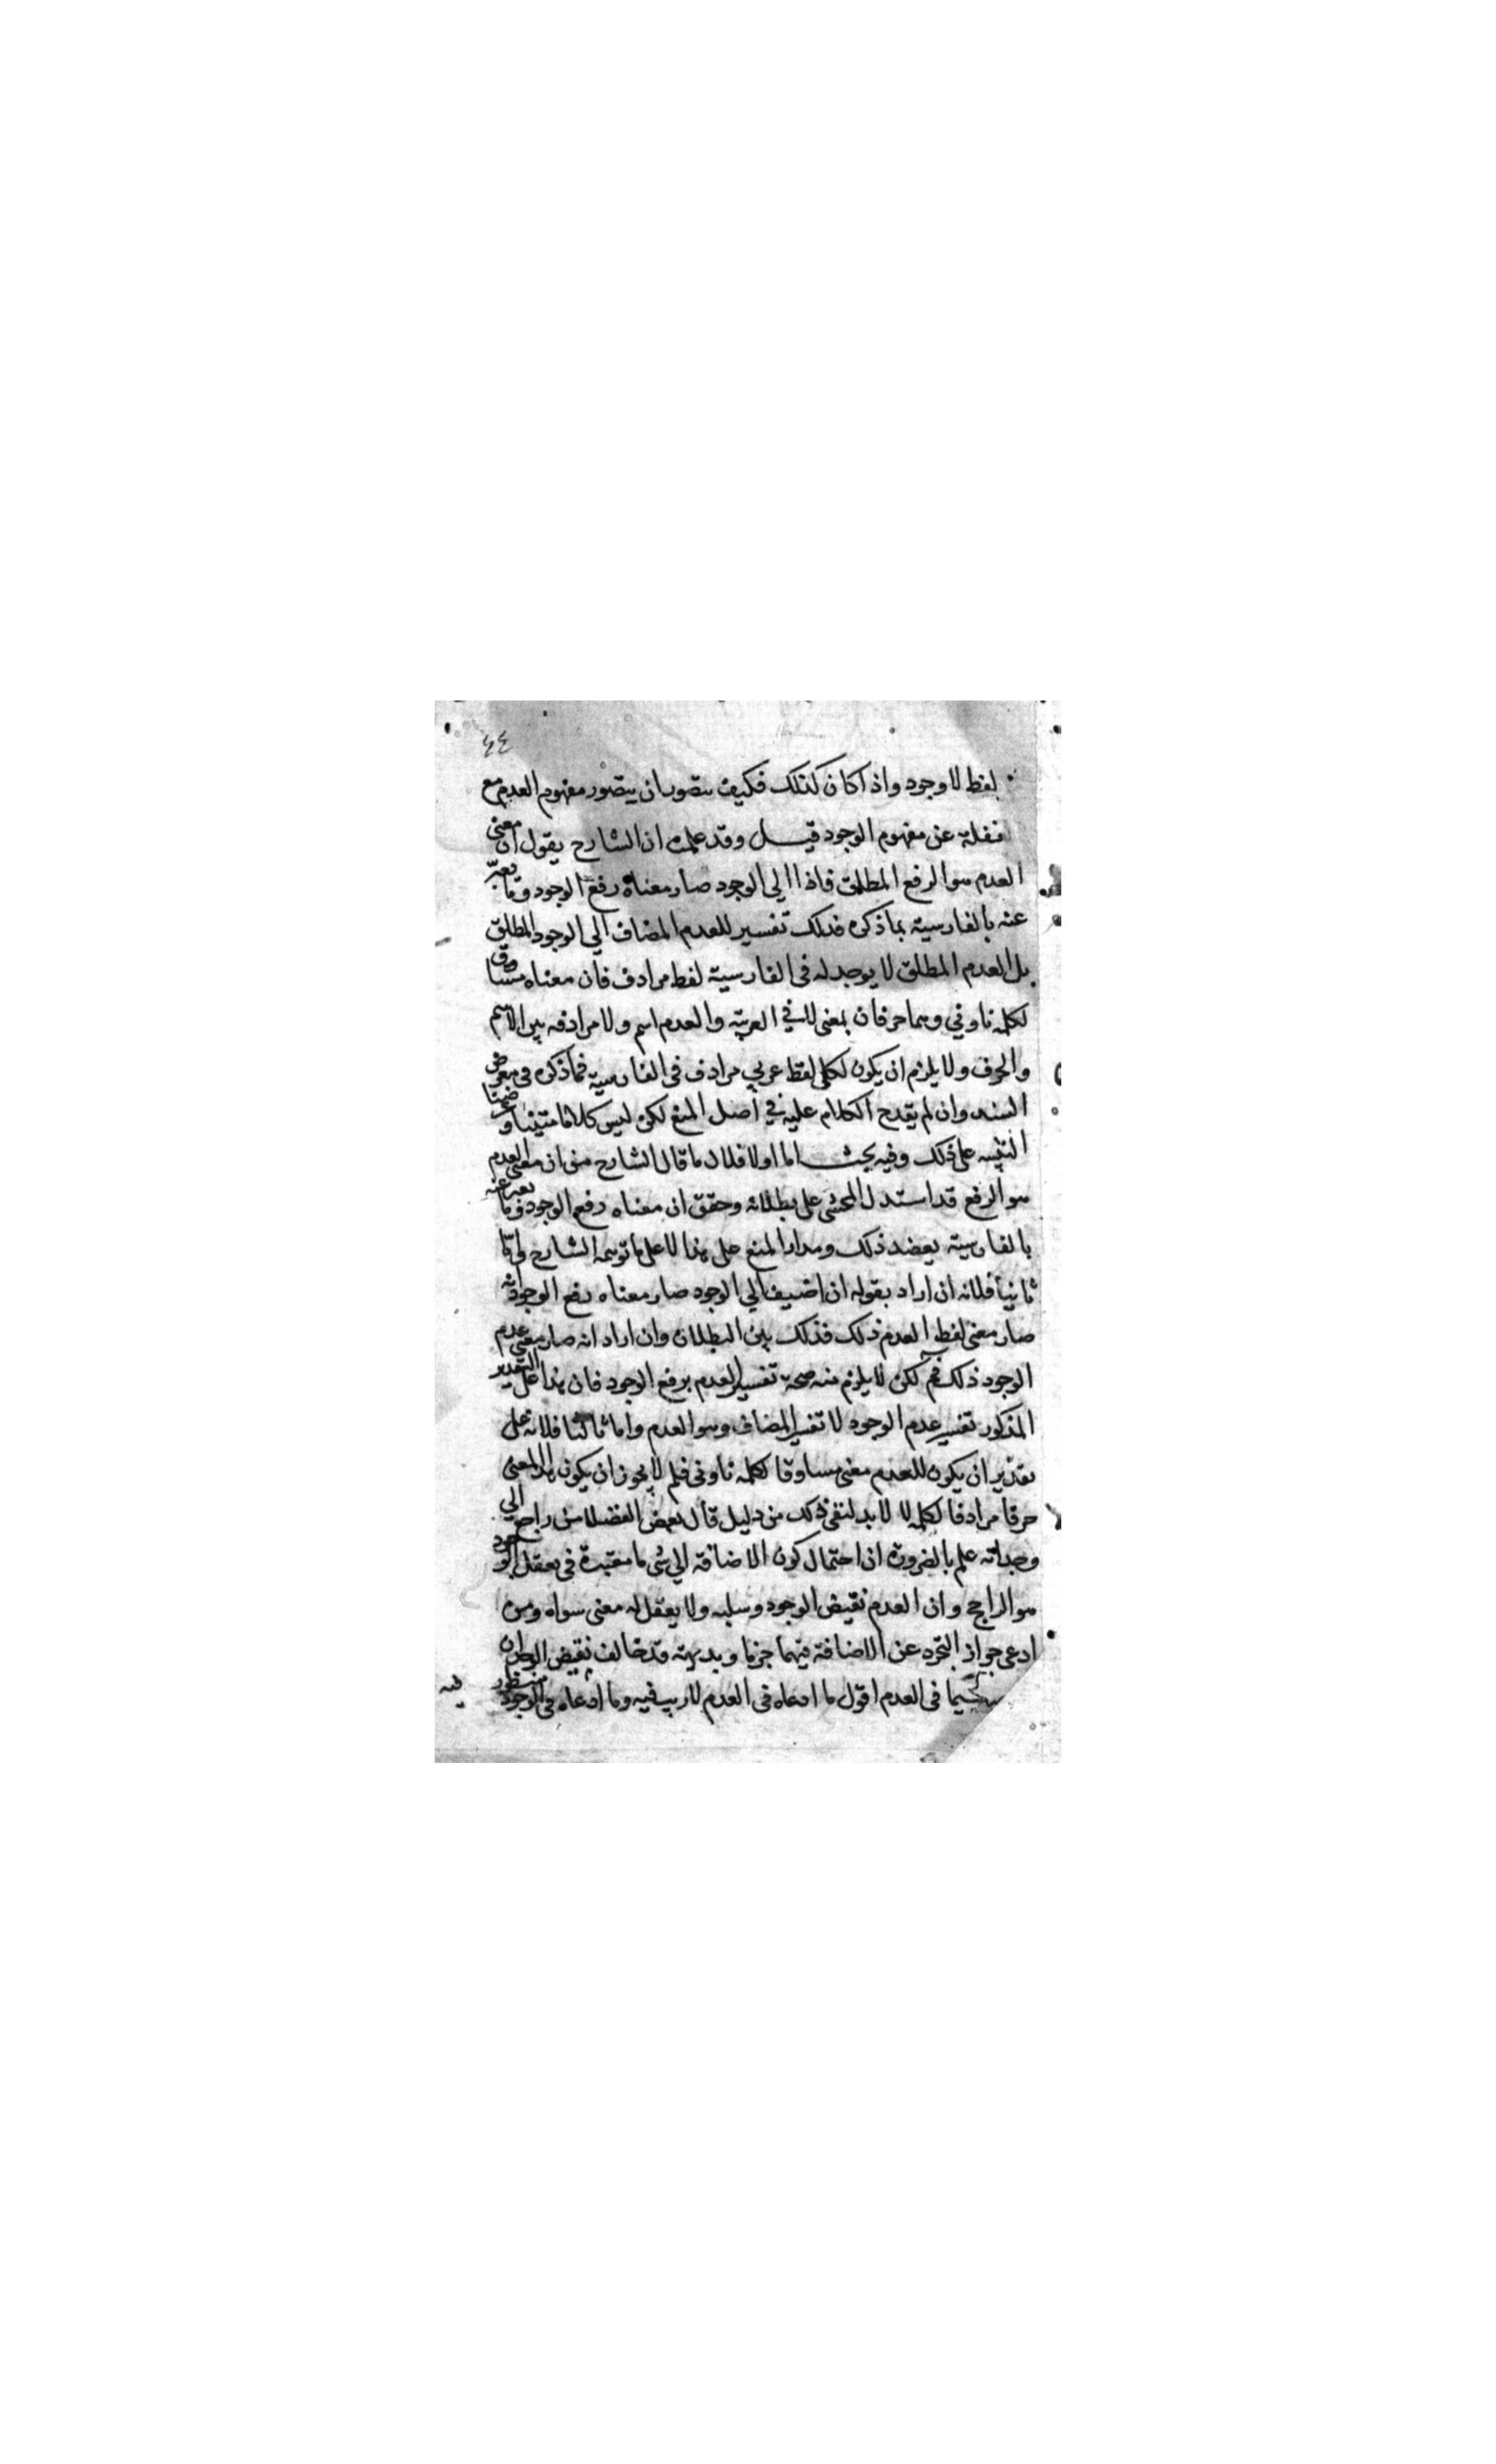 ٤٤
بلفظ لا وجود واذا كان كذلك فكيف يتصور ان يتصور مفهوم العدم مع
الغفلة عن مفهوم الوجود قيل وقد علمت ان الشارح يقول ان معنى
العدم هو الرفع المطلق فاذا الى الوجود صار معناه رفع الوجود وما يعبر
عنه بالفارسية بما ذكره فذلك تفسير للعدم المضاف الى الوجود المطلق
بل العدم المطلق لا يوجد له فى الفارسية لفظ مرادف فان معناه مساوق
لكلمة نا ونى وهما حرفان بمعنى لا فى العربية والعدم اسم ولا مرادفه بين الاسم
والحرف ولا يلزم ان يكون لكل لفظ عربي مرادف فى الفارسية فما ذكره فى معرض
السند وان لم يقدح الكلام عليه فى اصل المنع لكن ليس كلاما متينا و
التنبيه على ذلك وفيه بحث اما اولا فلان ما قال الشارح من ان معنى العدم
هو الرفع قد استدل المحشى على بطلانه وحقق ان معناه رفع الوجود وما يعبر عنه
بالفارسية يعضد ذلك ومدار المنع على هذا لا على ما توهمه الشارح واما
ثانيا فلانه ان اراد بقوله ان اضيف الى الوجود صار معناه رفع الوجود انه
صار معنى لفظ العدم ذلك فذلك بين البطلان وان اراد انه صار معنى عدم
الوجود ذلك فمم لكن لا يلزم منه صحة تفسير العدم برفع الوجود فان هذا على التقدير
المذكور تفسير عدم الوجود لا تفسير المضاف وهو العدم واما ثالثا فلانه على
تقدير ان يكون للعدم معنى مساوقا لكلمة نا ونى فلم لا يجوز ان يكون هذا المعنى
حرفا مرادفا لكلمة لا لا بد لنفى ذلك من دليل قال بعض الفضلا من راجع الى
وجدانه علم بالضرورة ان احتمال كون الاضافة الى شى ما معتبرة فى تعقل الوجود
هو الراجح وان العدم نقيض الوجود وسلبه ولا يعقل له معنى سواه ومن
ادعى جواز التجرد عن الاضافة فيهما جزما وبديهة فقد خالف نقيض الوجدان
سيما فى العدم اقول ما ادعاه فى العدم لا ريب فيه وما ادعاه فى الوجود منظور
فيه